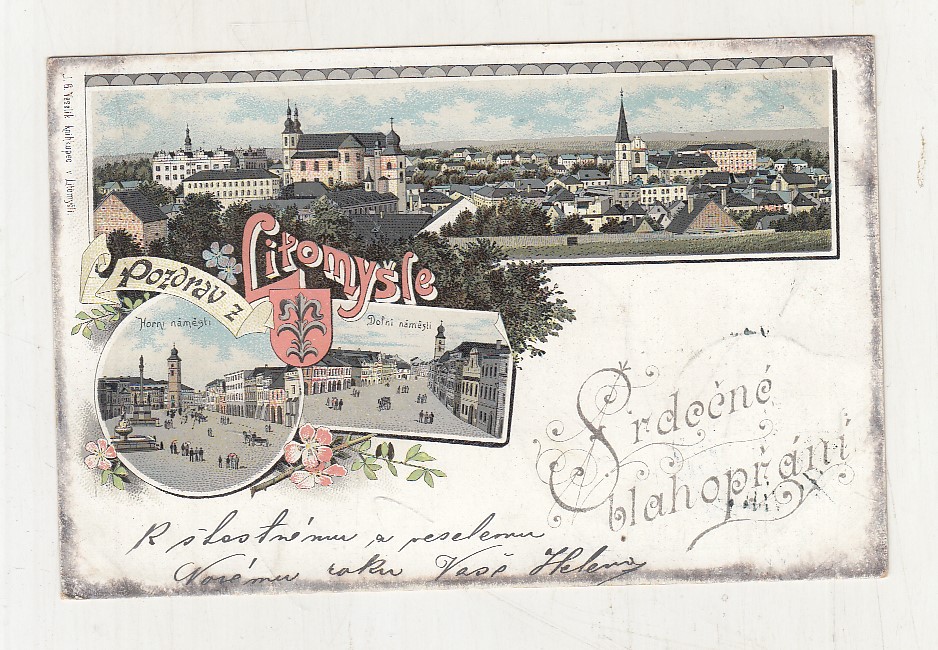 J. G. Veselík knihkupec v Litomyšli
Pozdrav z
Litomyšle
Horní náměstí
Dolní náměstí
Srdečné
blahopřání
K šťastnému a veselému
Novému roku Vaše Helena